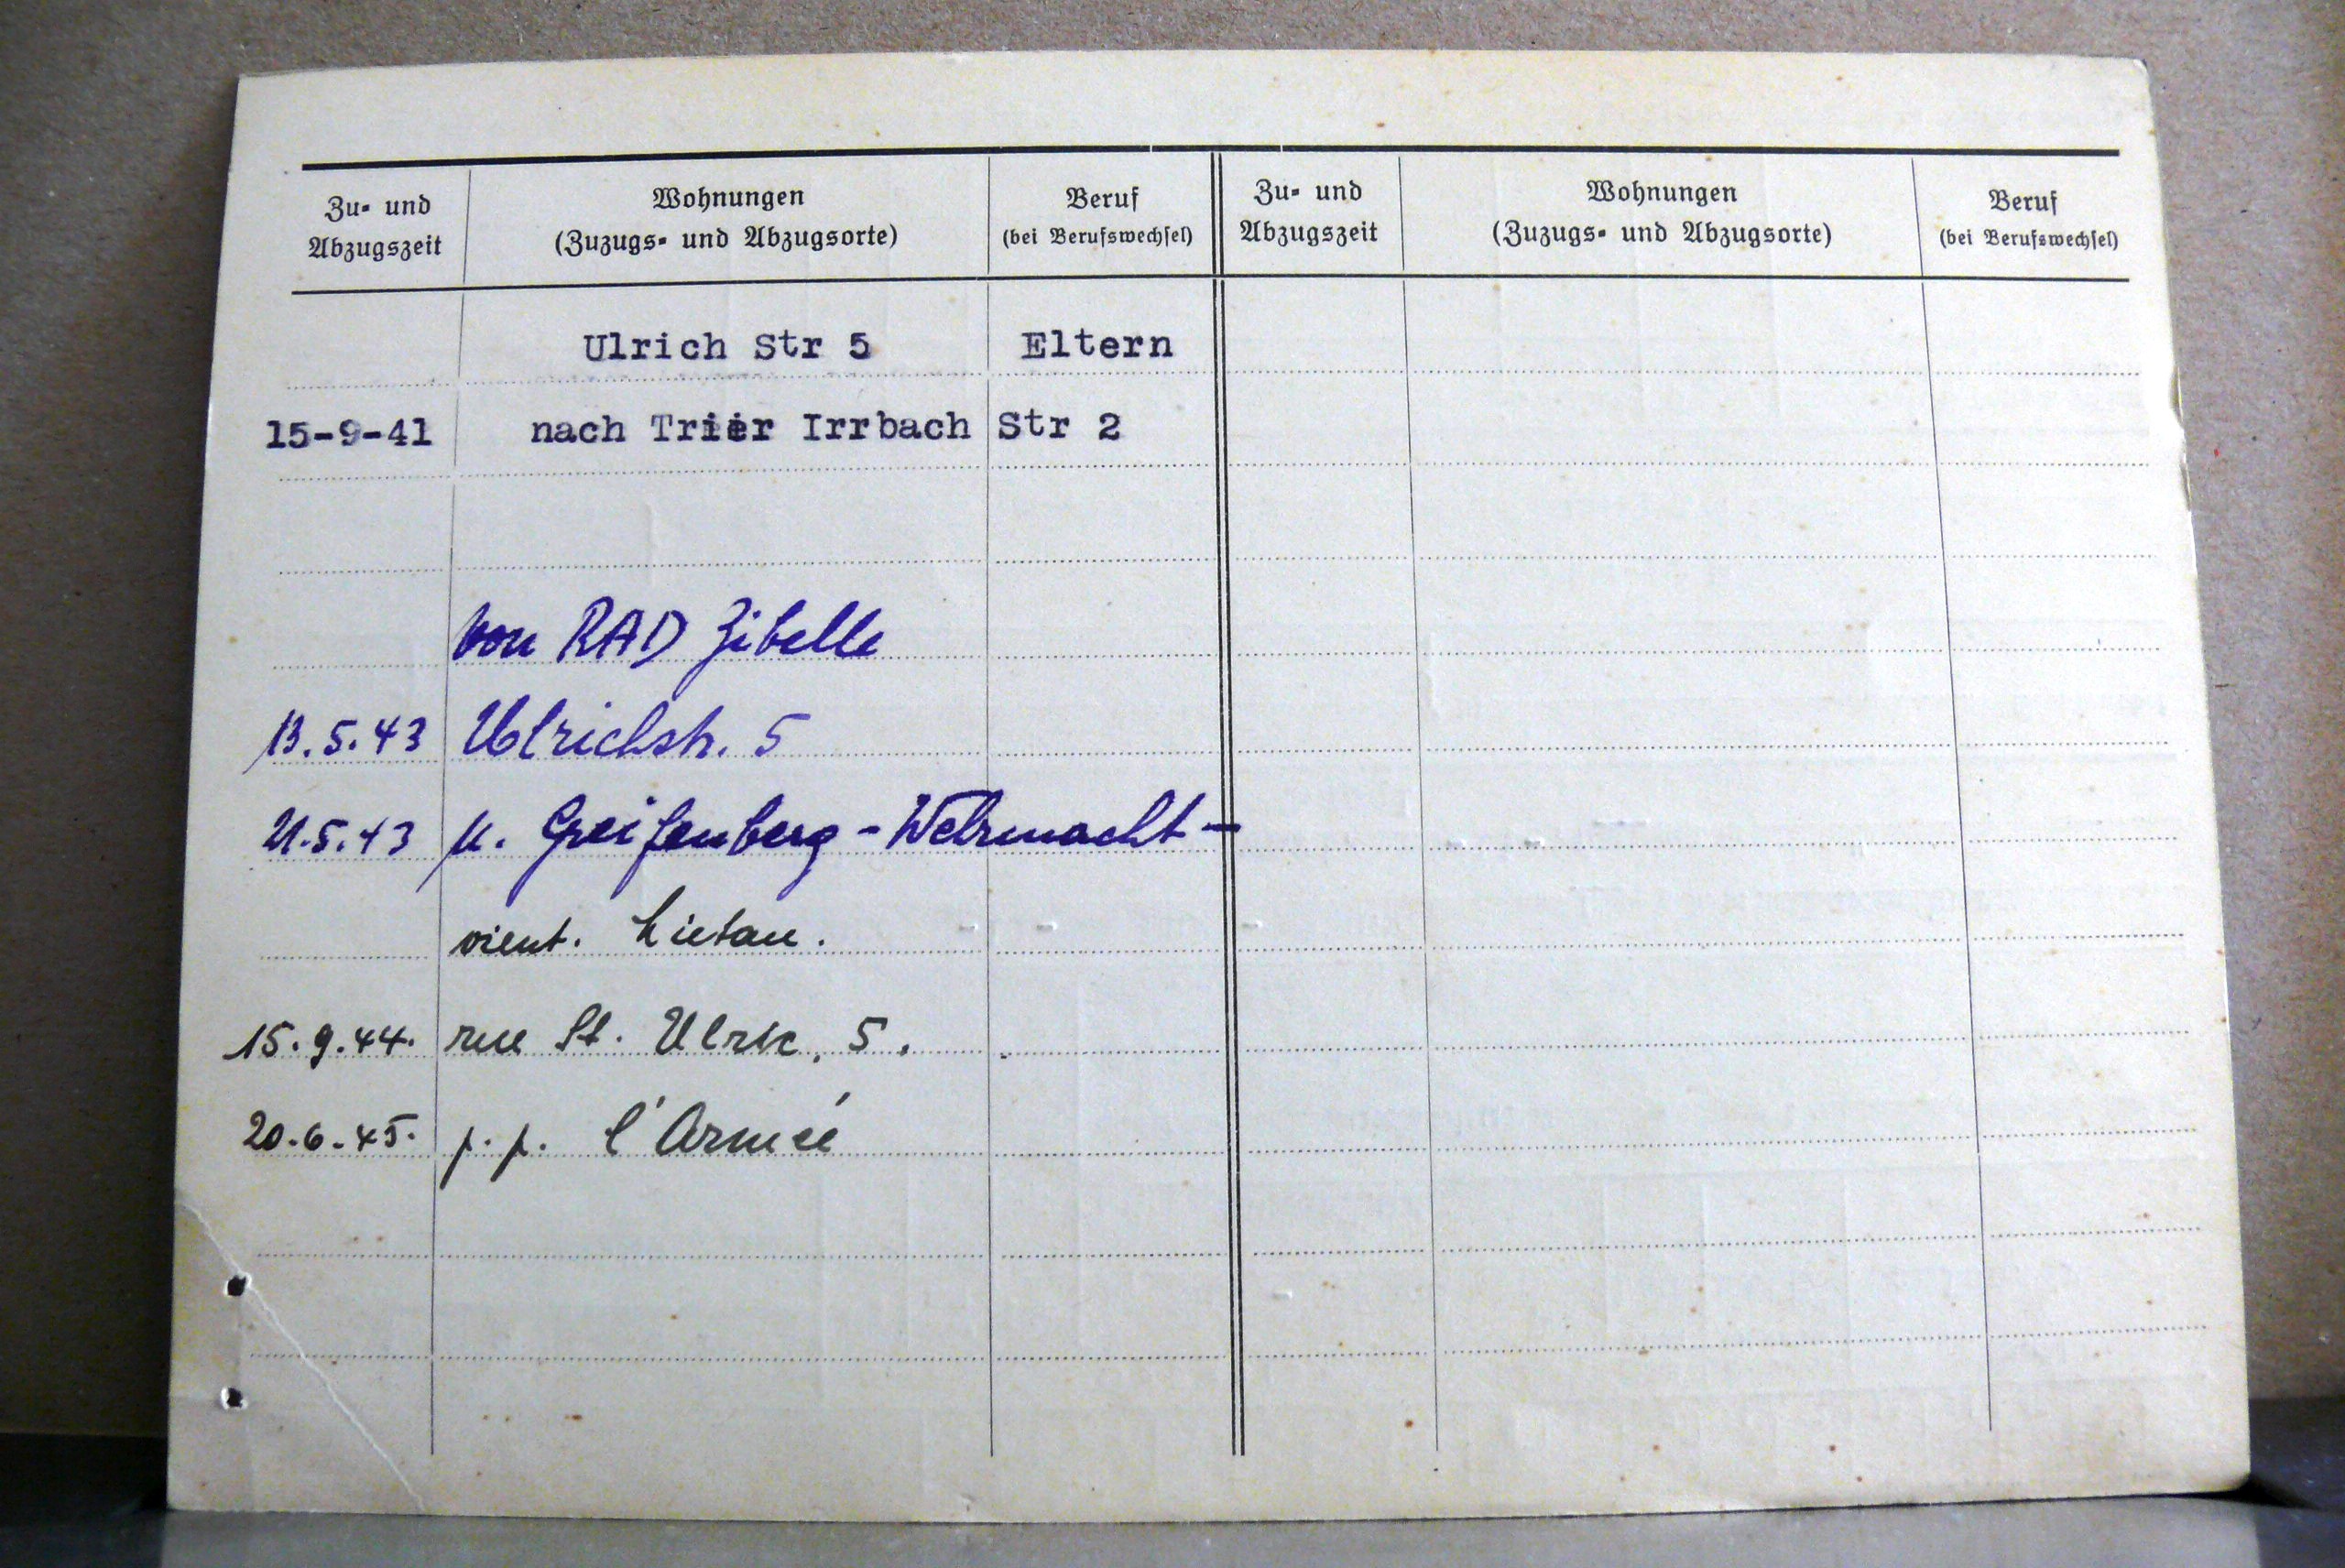 Zu- und
Abzugszeit
Wohnungen
(Zuzugs- und Abzugsorte)
Beruf
(bei Berufswechsel)
Zu- und
Abzugszeit
Wohnungen
(Zuzugs- und Abzugsorte)
Beruf
(bei Berufswechsel)
Ulrich Str 5 Eltern
15-9-41 nach Trier Irrbach Str 2
von RAD Zibelle
13.5.43 Ulrichstr. 5
21.5.43 n. Greifenberg - Wehrmacht -
vient. Lietau.
15.9.44. rue St. Ulric, 5.
20.6.45. p.p. l'Armée